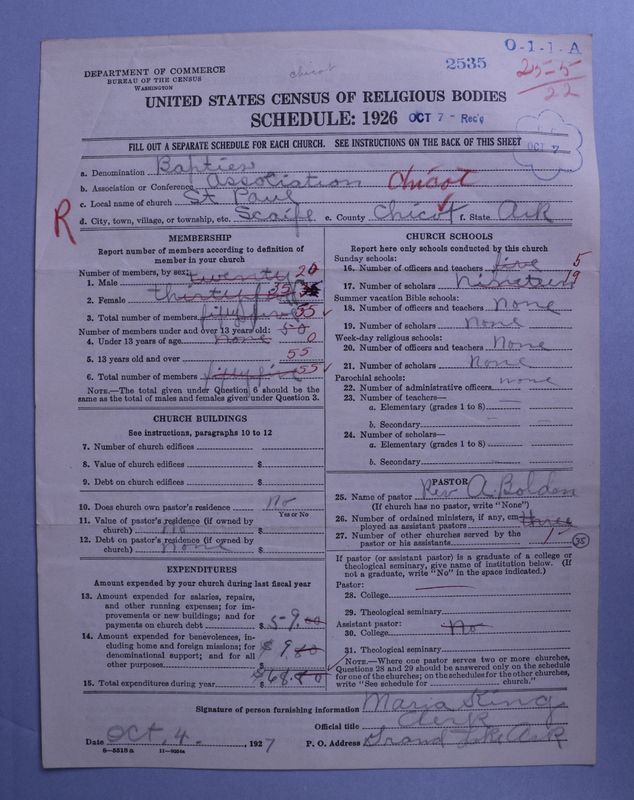 O-1-1-A
2535
25-5
22
chicot
DEPARTMENT OF COMMERCE
BUREAU OF THE CENSUS
WASHINGTON
UNITED STATES CENSUS OF RELIGIOUS BODIES
SCHEDULE: 1926 OCT 7 - Rec'd
FILL OUT A SEPARATE SCHEDULE FOR EACH CHURCH. SEE INSTRUCTIONS ON THE BACK OF THIS SHEET
OCT 7
a. Denomination Baptist
b. Association or Conference Association Chicot
c. Local name of church St Paul
R
d. City, town, village, or township, etc. Scaife e. County Chicot f. State Ark
MEMBERSHIP
Report number of members according to definition of
member in your church
Number of members, by sex:
1. Male twenty 20
2. Female thirty five 35
3. Total number of members fifty five 55
Number of members under and over 13 years old: 50
4. Under 13 years of age none 0
5. 13 years old and over 55
6. Total number of members fifty five 55
NOTE.—The total given under Question 6 should be the
same as the total of males and females given under Question 3.
CHURCH BUILDINGS
See instructions, paragraphs 10 to 12
7. Number of church edifices
8. Value of church edifices $
9. Debt on church edifices $
10. Does church own pastor's residence No
Yes or No
11. Value of pastor's residence (if owned by
church) No $
12. Debt on pastor's residence (if owned by
church) None $
EXPENDITURES
Amount expended by your church during last fiscal year
13. Amount expended for salaries, repairs,
and other running expenses; for im-
provements or new buildings; and for
payments on church debt $ 59.00
14. Amount expended for benevolences, in-
cluding home and foreign missions; for
denominational support; and for all
other purposes $ 9.00
15. Total expenditures during year $ 68.00
CHURCH SCHOOLS
Report here only schools conducted by this church
Sunday schools:
16. Number of officers and teachers five 5
17. Number of scholars nineteen 19
Summer vacation Bible schools:
18. Number of officers and teachers None
19. Number of scholars None
Week-day religious schools:
20. Number of officers and teachers None
21. Number of scholars None
Parochial schools:
22. Number of administrative officers none
23. Number of teachers—
a. Elementary (grades 1 to 8)
b. Secondary
24. Number of scholars—
a. Elementary (grades 1 to 8)
b. Secondary
PASTOR
25. Name of pastor Rev A. Bolden
(If church has no pastor, write "None")
26. Number of ordained ministers, if any, em-
ployed as assistant pastors three
27. Number of other churches served by the
pastor or his assistants 1 35
If pastor (or assistant pastor) is a graduate of a college or
theological seminary, give name of institution below. (If
not a graduate, write "No" in the space indicated.)
Pastor:
28. College
29. Theological seminary
Assistant pastor:
30. College No
31. Theological seminary
NOTE.—Where one pastor serves two or more churches,
Questions 28 and 29 should be answered only on the schedule
for one of the churches; on the schedules for the other churches,
write "See schedule for church."
Signature of person furnishing information Maria King
Official title Clerk
Date Oct, 4 - , 1927 P. O. Address Grand Lake Ark
8-5518a 11-9254a